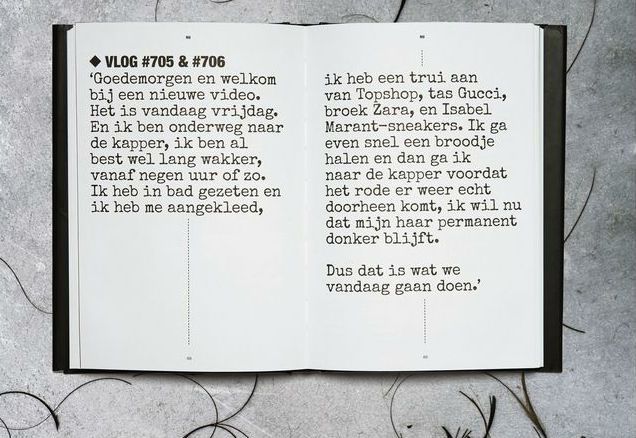 ◆ VLOG #705 & #706
‘Goedemorgen en welkom
bij een nieuwe video.
Het is vandaag vrijdag.
En ik ben onderweg naar
de kapper, ik ben al
best wel lang wakker,
vanaf negen uur of zo.
Ik heb in bad gezeten en
ik heb me aangekleed,
ik heb een trui aan
van Topshop, tas Gucci,
broek Zara, en Isabel
Marant-sneakers. Ik ga
even snel een broodje
halen en dan ga ik
naar de kapper voordat
het rode er weer echt
doorheen komt, ik wil nu
dat mijn haar permanent
donker blijft.
Dus dat is wat we
vandaag gaan doen.’